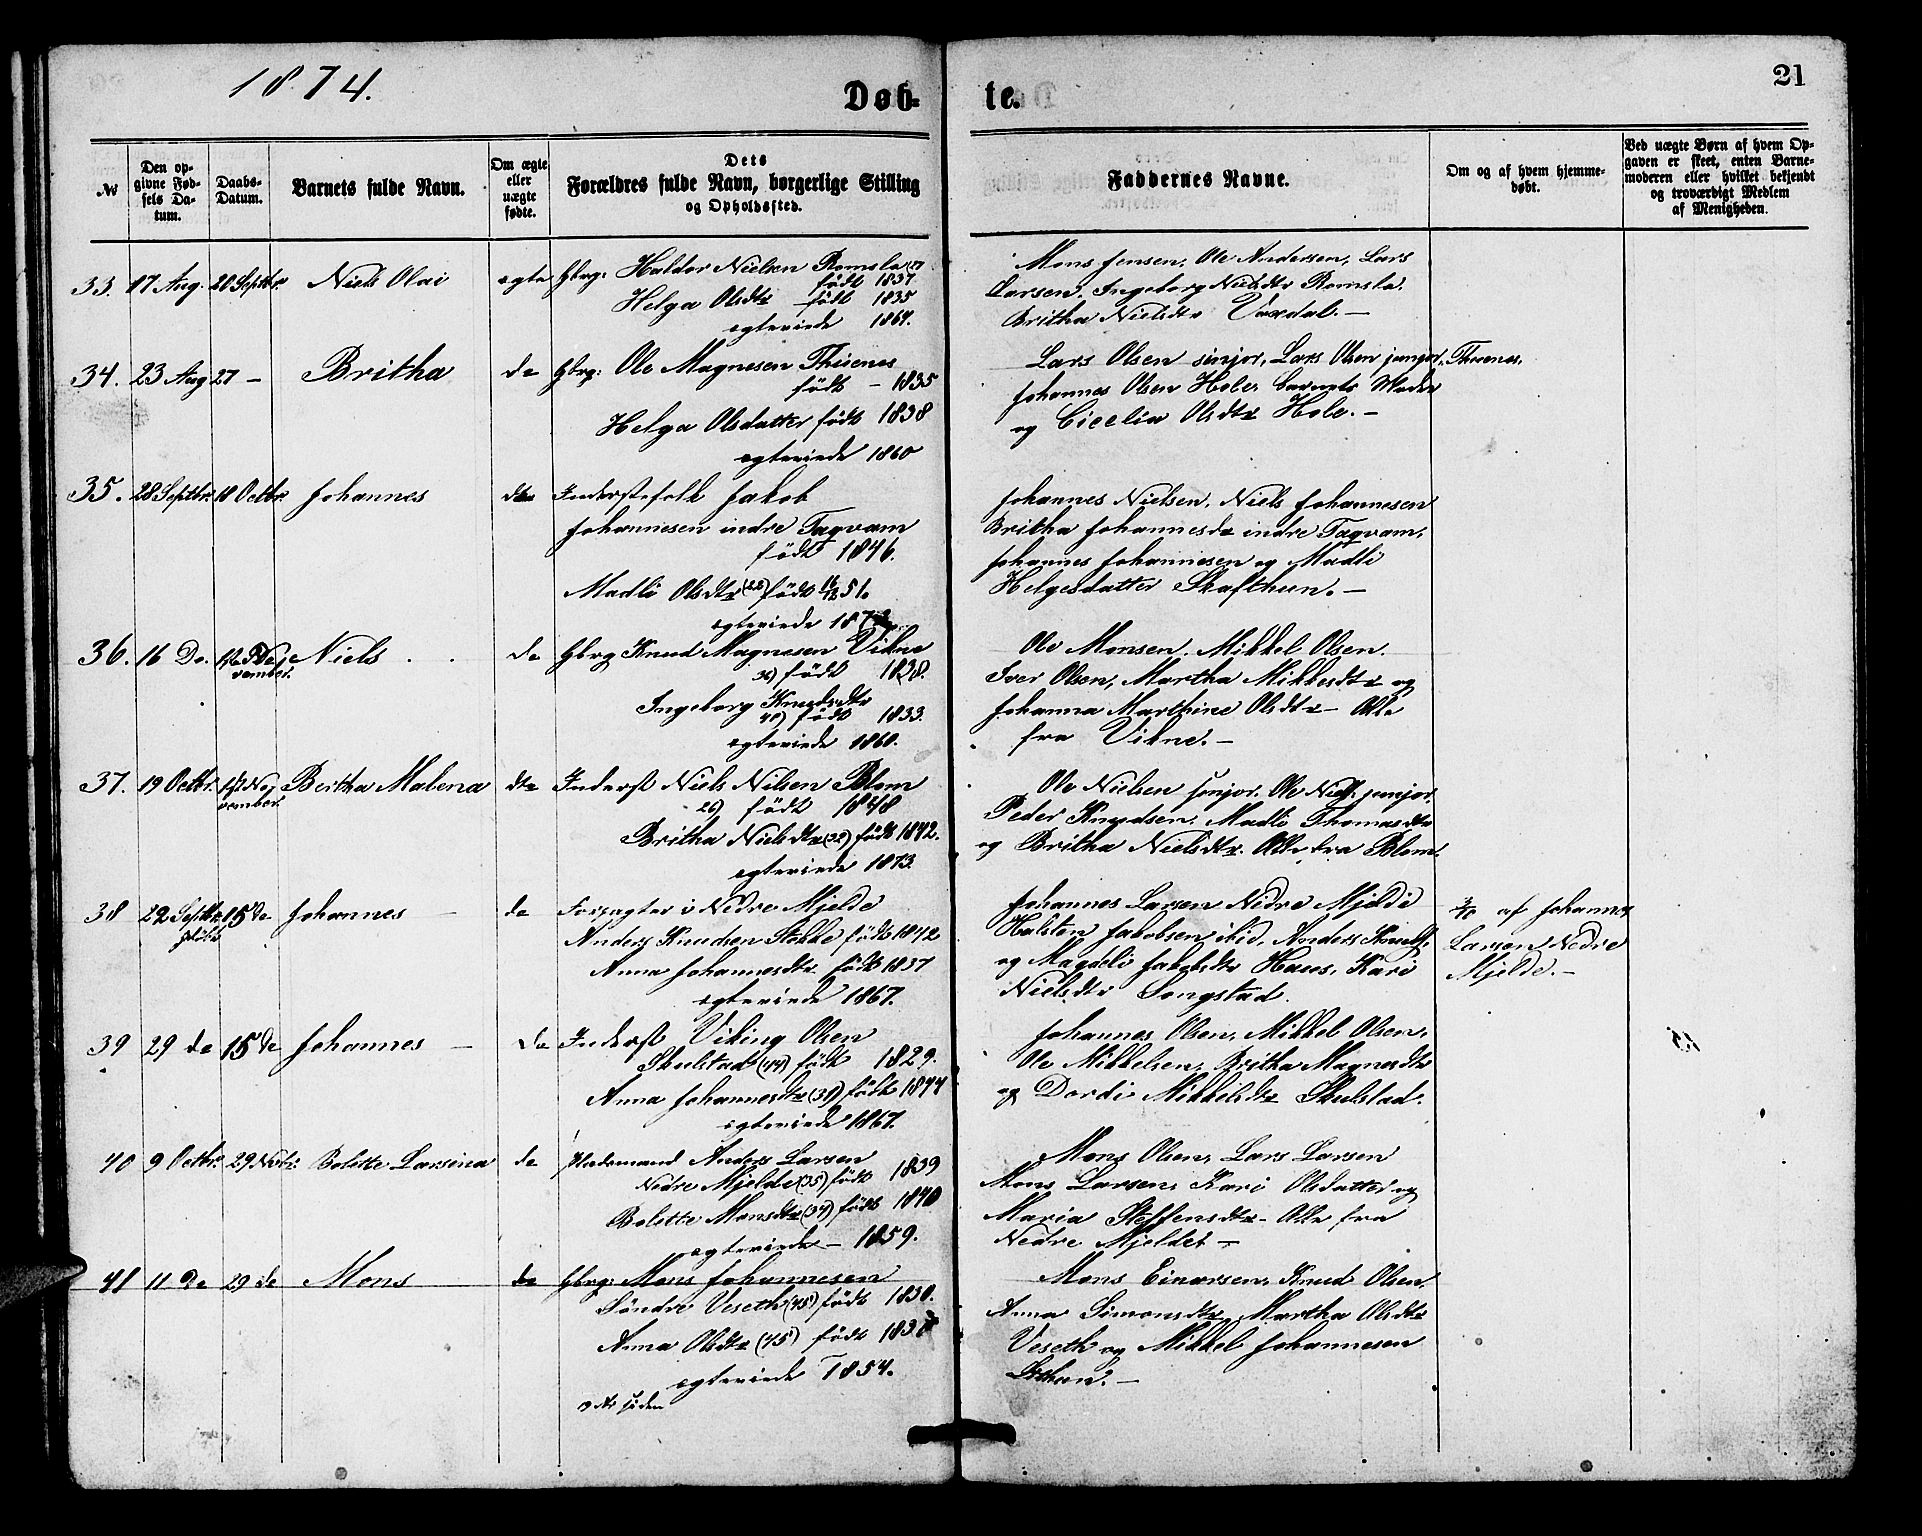 1874.
Døb-
te.
21
№
Den opgivne Fødsels Datum.
Daabs-Datum.
Barnets fulde Navn.
Om ægte eller uægte fødte.
Dets
Forældres fulde Navn, borgerlige Stilling
og Opholdssted.
Faddernes Navne.
Om og af hvem hjemmedøbt.
Ved uægte Børn af hvem Opgaven er skeet, enten Barnemoderen eller hvilket bekjendt og troværdigt Medlem af Menigheden.
33. 17 Aug. 20 Septbr. Niels Olai ægte Gbrg: Haldor Nielsen Romslo
født 1837
Helga Olsdtr født 1835
egteviede 1864.
Mons Jensen, Ole Andersen, Lars
Larsen, Ingeborg Nielsdtr Romslo.
Britha Nielsdtr Vaxdal. —
34. 23 Aug 27 — Britha do Gbrg: Ole Magnesen Thuenes
født — 1835
Helga Olsdatter født 1838
egteviede 1860
Lars Olsen sinjor, Lars Olsen junjor, Thuenes,
Johannes Olsen Hole, barnets Moder
og Cicelia Olsdtr Hole. —
35. 28 Septbr. 18 Octbr. Johannes dto Inderstefolk Jakob
Johannesen indre Taqvam
født 1846.
Madli Olsdtr født 16/12 51.
egteviede
Johannes Nielsen, Niels Johannesen
Britha Johannesdr indre Taqvam,
Johannes Johannesen og Madli
Helgesdatter Skafthun. —
36. 16 Do. Niels do Gbrg Knud Magnesen Vikne
36) født 1838.
Ingeborg Knudsdtr
født 1833.
egteviede 1860.
Ole Monsen, Mikkel Olsen.
Iver Olsen, Martha Mikkelsdtr og
Johanna Marthine Olsdtr — Alle
fra Vikne. —
37. 19 Octbr. November. Beritha Malena dto Inderst Niels Nilsen Blom
26) født 1848
Britha Nielsdtr (32) født 1842.
egteviede 1873.
Ole Nielsen senjor, Ole Niels. junjor,
Peder Knudsen, Madli Thomasdtr
og Britha Nielsdtr. Alle fra Blom.
38 22 Septbr. født 15 de Johannes — do Forpagter i Nedre Mjelde
Anders Knudsen Stokke født 1842
Anna Johannesdtr født 1837
egteviede 1867.
Johannes Larsen Nedre Mjelde
Halsten Jakobsen ibid, Anders Knuds.
og Magdeli Jakobsdtr Haus, Kari
Nielsdtr Songstad.
3/10 af Johannes
Larsen Nedre
Mjelde. —
39 29 de 15 de Johannes — Do Inderst Viking Olsen
Skulstad (44) født 1829.
Anna Johannesdtr født 1844
egteviede 1867.
Johannes Olsen, Mikkel Olsen,
Ole Mikkelsen, Britha Magnesdtr
og Dordi Mikkelsdtr Skulstad.
40 9 Octbr. 29 Novbr. Bolette Larsina do Pladsmand Anders Larsen
Nedre Mjelde (35) født 1839
Bolette Monsdtr (34) født 1840
egteviede — 1859.
Mons Olsen, Lars Larsen
Mons Larsen, Kari Olsdatter og
Maria Steffensdtr — Alle fra
Nedre Mjelde —
41 11 de 29 de Mons do Gbrg: Mons Johannesen
Söndre Veseth (45) født 1830.
Anna Olsdtr (45) født
egteviede 1854.
Mons Einarsen, Knud Olsen,
Anna Simonsdtr, Martha Olsdtr
Veseth og Mikkel Johannesen